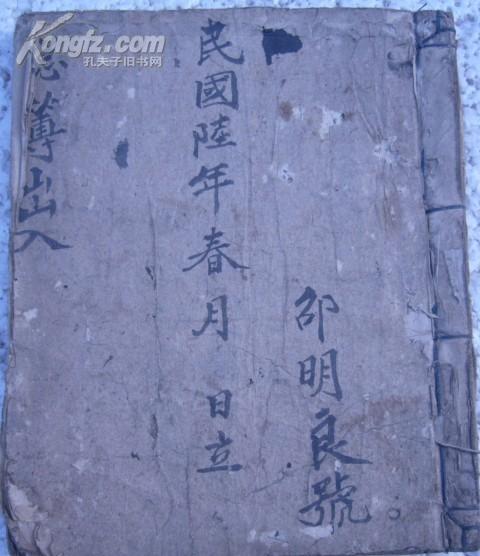 邵明良號
民國陸年春月 日立
总簿出入
Kongfz.com
孔夫子旧书网